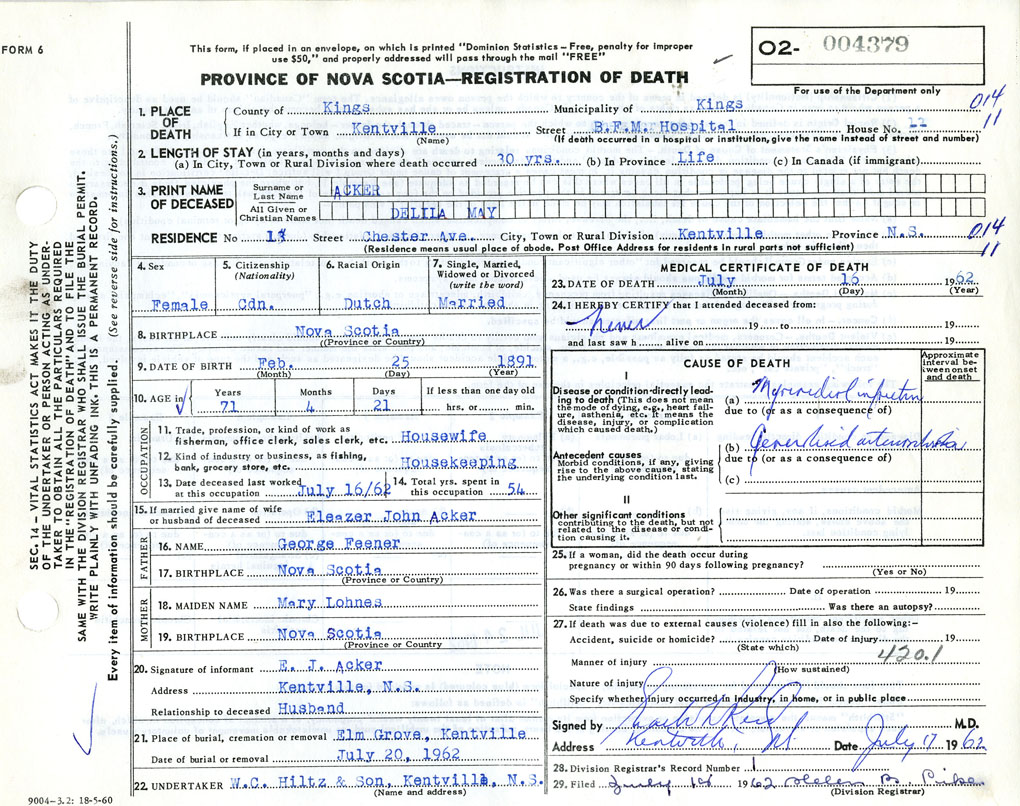 FORM 6
This form, if placed in an envelope, on which is printed "Dominion Statistics – Free, penalty for improper
use $50," and properly addressed will pass through the mail "FREE"
PROVINCE OF NOVA SCOTIA—REGISTRATION OF DEATH
O2- 004379
For use of the Department only
014
11
1. PLACE OF DEATH
County of Kings Municipality of Kings
If in City or Town Kentville Street B.F.M. Hospital House No.
(Name) (If death occurred in a hospital or institution, give the name instead of street and number)
2. LENGTH OF STAY (in years, months and days)
(a) In City, Town or Rural Division where death occurred 30 yrs. (b) In Province Life (c) In Canada (if immigrant)
3. PRINT NAME OF DECEASED
Surname or Last Name ACKER
All Given or Christian Names DELILA MAY
RESIDENCE No Street Chester Ave. City, Town or Rural Division Kentville Province N.S.
(Residence means usual place of abode. Post Office Address for residents in rural parts not sufficient)
014
11
4. Sex Female
5. Citizenship (Nationality) Cdn.
6. Racial Origin Dutch
7. Single, Married, Widowed or Divorced (write the word) Married
8. BIRTHPLACE Nova Scotia
(Province or Country)
9. DATE OF BIRTH Feb. 25 1891
(Month) (Day) (Year)
10. AGE in Years 71 Months 4 Days 21 If less than one day old hrs. or min.
OCCUPATION
11. Trade, profession, or kind of work as fisherman, office clerk, sales clerk, etc. Housewife
12. Kind of industry or business, as fishing, bank, grocery store, etc. Housekeeping
13. Date deceased last worked at this occupation July 16/62
14. Total yrs. spent in this occupation 54
15. If married give name of wife or husband of deceased Eleazer John Acker
FATHER
16. NAME George Feener
17. BIRTHPLACE Nova Scotia
(Province or Country)
MOTHER
18. MAIDEN NAME Mary Lohnes
19. BIRTHPLACE Nova Scotia
(Province or Country
20. Signature of informant E. J. Acker
Address Kentville, N.S.
Relationship to deceased Husband
21. Place of burial, cremation or removal Elm Grove, Kentville
Date of burial or removal July 20, 1962
22. UNDERTAKER W.C. Hiltz & Son, Kentville, N.S.
(Name and address)
9004-3.2: 18-5-60
MEDICAL CERTIFICATE OF DEATH
23. DATE OF DEATH July 16 1962
(Month) (Day) (Year)
24. I HEREBY CERTIFY that I attended deceased from:
never 19 to 19
and last saw h alive on 19
CAUSE OF DEATH
Approximate interval between onset and death
I
Disease or condition directly leading to death (This does not mean the mode of dying, e.g., heart failure, asthenia, etc. It means the disease, injury, or complication which caused death.)
(a) Myocardial infarction
due to (or as a consequence of)
Antecedent causes
Morbid conditions, if any, giving rise to the above cause, stating the underlying condition last.
(b) Generalized arteriosclerosis
due to (or as a consequence of)
(c)
II
Other significant conditions
contributing to the death, but not related to the disease or condition causing it.
25. If a woman, did the death occur during
pregnancy or within 90 days following pregnancy?
(Yes or No)
26. Was there a surgical operation? Date of operation 19
State findings Was there an autopsy?
27. If death was due to external causes (violence) fill in also the following:–
Accident, suicide or homicide? Date of injury 19
(State which)
420.1
Manner of injury
(How sustained)
Nature of injury
Specify whether injury occurred in industry, in home, or in public place
Signed by M.D.
Address Kentville, NS Date July 17 1962
28. Division Registrar's Record Number 1
29. Filed July 1962 Helen B.
(Division Registrar)
SEC. 14 – VITAL STATISTICS ACT MAKES IT THE DUTY
OF THE UNDERTAKER OR PERSON ACTING AS UNDER-
TAKER TO OBTAIN ALL THE PARTICULARS REQUIRED
IN THE "REGISTRATION OF DEATH" AND TO FILE THE
SAME WITH THE DIVISION REGISTRAR WHO SHALL ISSUE THE BURIAL PERMIT.
WRITE PLAINLY WITH UNFADING INK. THIS IS A PERMANENT RECORD.
Every item of information should be carefully supplied. (See reverse side for instructions.)